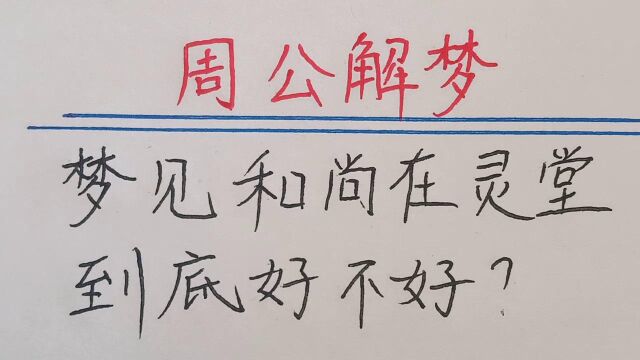 周公解梦
梦见和尚在灵堂
到底好不好?